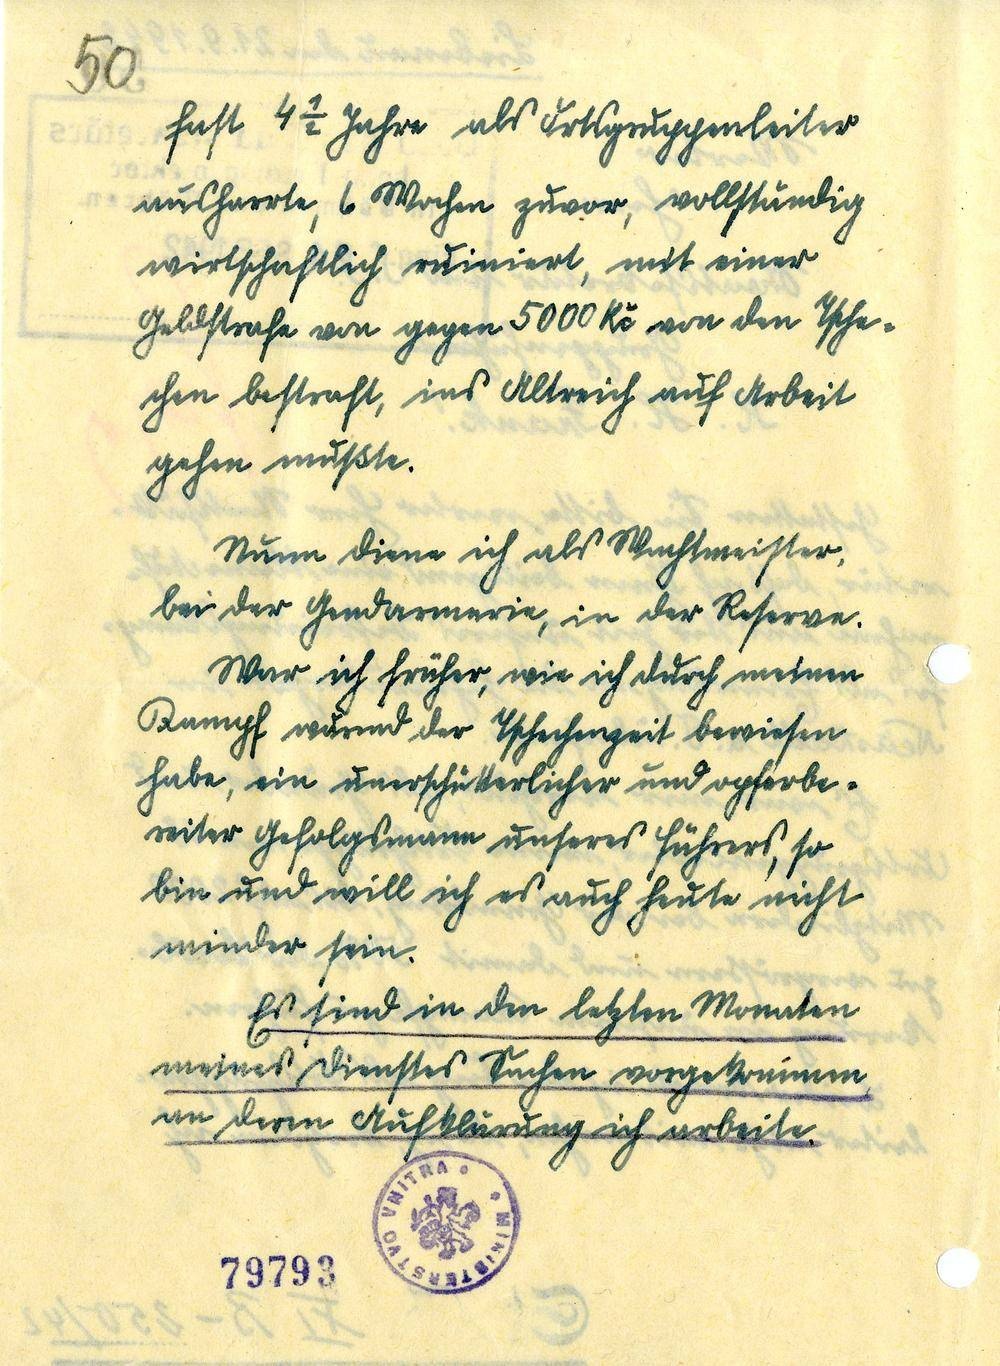 50
fast 4 1/2 Jahre als Ortsgruppenleiter
ausharrte, 6 Wochen zuvor, vollständig
wirtschaftlich ruiniert, mit einer
Geldstrafe von gegen 5000 Kč von den Tsche-
chen bestraft, ins Altreich auf Arbeit
gehen mußte.
Nunn diene ich als Wachtmeister,
bei der Gendarmerie, in der Reserve.
War ich früher, wie ich durch meinen
Kampf wärend der Tschechenzeit bewiesen
habe, ein unerschütterlicher und opferbe-
reiter Gefolgsmann unseres Führers, so
bin und will ich es auch heute nicht
minder sein.
Es sind in den letzten Monaten
meines Dienstes Sachen vorgekommen,
an deren Aufklärung ich arbeite.
MINISTERSTVO VNITRA
79793